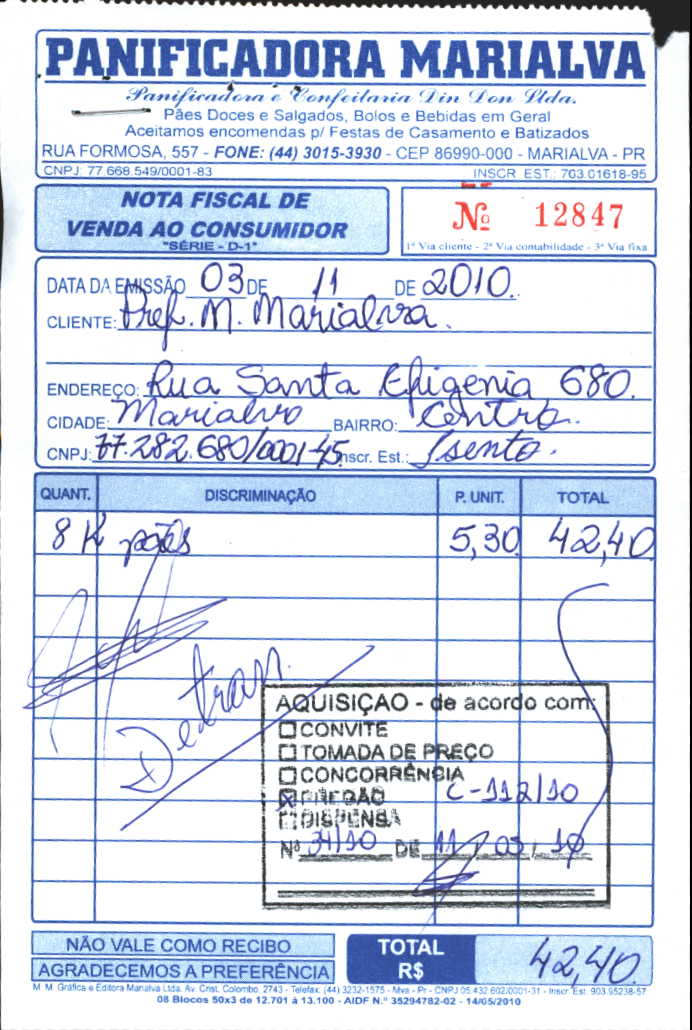 PANIFICADORA MARIALVA
Panificadora e Confeitaria Din Don Ltda.
Pães Doces e Salgados, Bolos e Bebidas em Geral
Aceitamos encomendas p/ Festas de Casamento e Batizados
RUA FORMOSA, 557 - FONE: (44) 3015-3930 - CEP 86990-000 - MARIALVA - PR
CNPJ: 77.668.549/0001-83 INSCR. EST.: 703.01618-95
NOTA FISCAL DE
VENDA AO CONSUMIDOR
"SÉRIE - D-1"
Nº 12847
1ª Via cliente - 2ª Via contabilidade - 3ª Via fixa
DATA DA EMISSÃO 03 DE 11 DE 2010.
CLIENTE: Pref. M. Marialva.
ENDEREÇO: Rua Santa Efigenia 680.
CIDADE: Marialva BAIRRO: Centro.
CNPJ: 77.282.680/0001-45 Inscr. Est.: Isento.
QUANT. DISCRIMINAÇÃO P. UNIT. TOTAL
8 K pães 5,30 42,40
Detran.
AQUISIÇAO - de acordo com:
CONVITE
TOMADA DE PREÇO
CONCORRÊNCIA
PREGÃO C-112/10
DISPENSA
Nº 34/10 DE 11 / 03 / 10
NÃO VALE COMO RECIBO
AGRADECEMOS A PREFERÊNCIA
TOTAL R$ 42,40
M. M. Gráfica e Editora Marialva Ltda. Av. Crist. Colombo, 2743 - Telefax: (44) 3232-1575 - Mva - Pr - CNPJ 05.432.602/0001-31 - Inscr. Est. 903.95238-57
08 Blocos 50x3 de 12.701 à 13.100 - AIDF N.º 35294782-02 - 14/05/2010